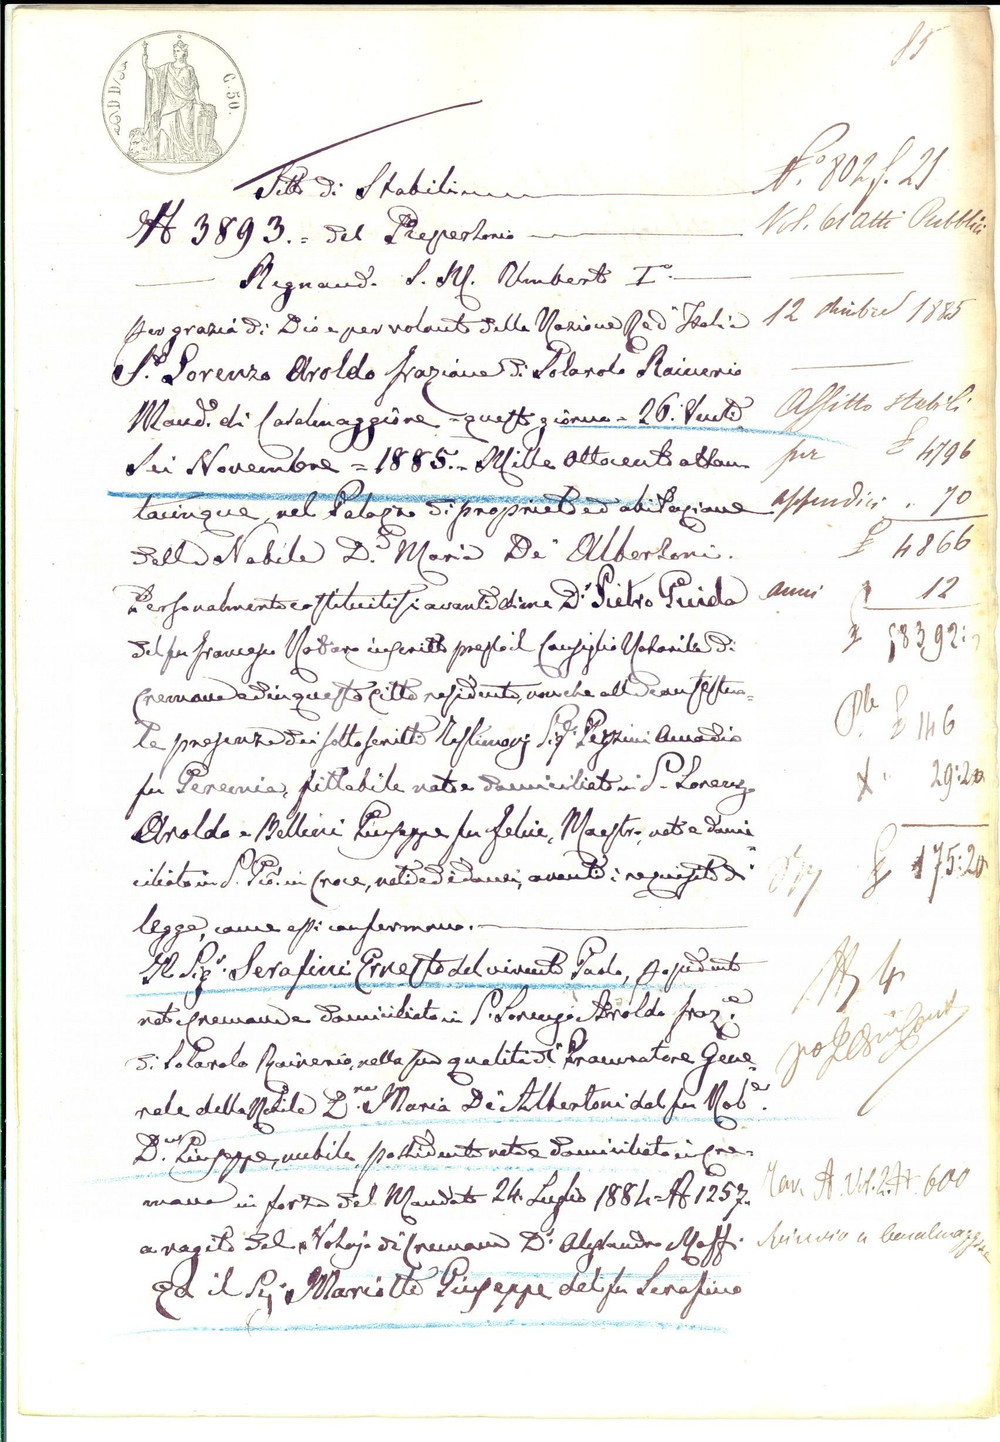 85
C. 50.
Fitto di Stabili
N.° 802 f. 21
N 3893. = del Repertorio
Vol. 61 Atti Pubblici
Regnando S. M. Umberto I.°
per grazia di Dio e per volontà della Nazione Re d'Italia
12 dicembre 1885
S. Lorenzo Aroldo frazione di Solarolo Rainerio
Mand.° di Casalmaggiore = questo giorno = 26. Venti
Affitto stabili
per £ 4796
sei Novembre = 1885. = Mille ottocento ottan
tacinque, nel Palazzo di proprietà ed abitazione
appendici . 70
della Nobile D.a Maria De' Albertoni.
£ 4866
Personalmente costituitisi avanti di me D.r Pietro Guida
anni 12
del fu Francesco Notaro inscritto presso il Consiglio Notarile di
£ 58392:
Cremona ed in questa città residente, nonché alla contestua=
le presenza dei sottoscritti Testimonj Sig.i Pezzini Amadio
£ 146
fu Geremia, fittabile nato e domiciliato in S. Lorenzo
29:20
Aroldo e Bellini Giuseppe fu Felice, Maestro, nato e domi=
ciliato in S. Gio. in Croce, noti ed idonei, aventi i requisiti di
£ 175:20
legge, come essi confermano.
Il Sig.r Serafini Ernesto del vivente Paolo, possidente
nato Cremona e domiciliato in S. Lorenzo Aroldo fraz.e
di Solarolo Rainerio, nella sua qualità di Procuratore Gene=
rale della Nobile D.na Maria De' Albertoni del fu Nob.e
D.n Giuseppe, nubile, possidente nata e domiciliata in Cre=
mona in forza del Mandato 24. Luglio 1884 = N 1257.
Vol. 2. N. 600
a rogito del Notajo di Cremona D.r Alessandro Maffi
Ed il Sig.r Mariotti Giuseppe del fu Serafino